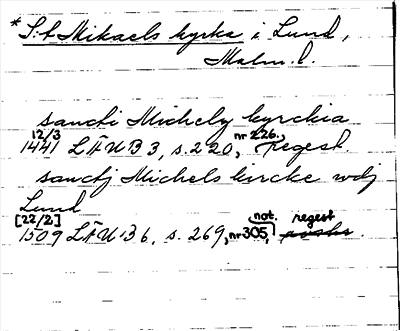 *S:t Mikaels kyrka i Lund,
Malm. l.
sancti Michely kyrckia
12/3 1441 LÄUB 3, s. 220, nr 226., regest.
sanctj Michels kircke wdj
Lund
[22/2] 1509 LÄUB 6, s. 269, nr 305, not. regest.